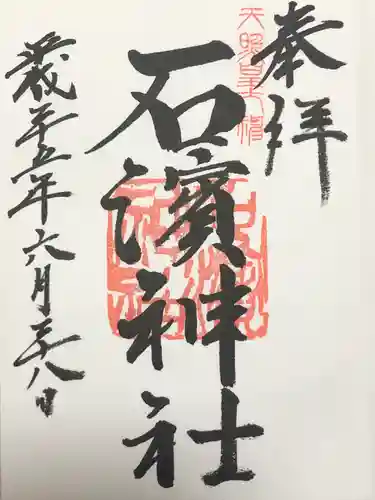 奉拝
天照皇大神
石濱神社
平成廿五年六月廿八日